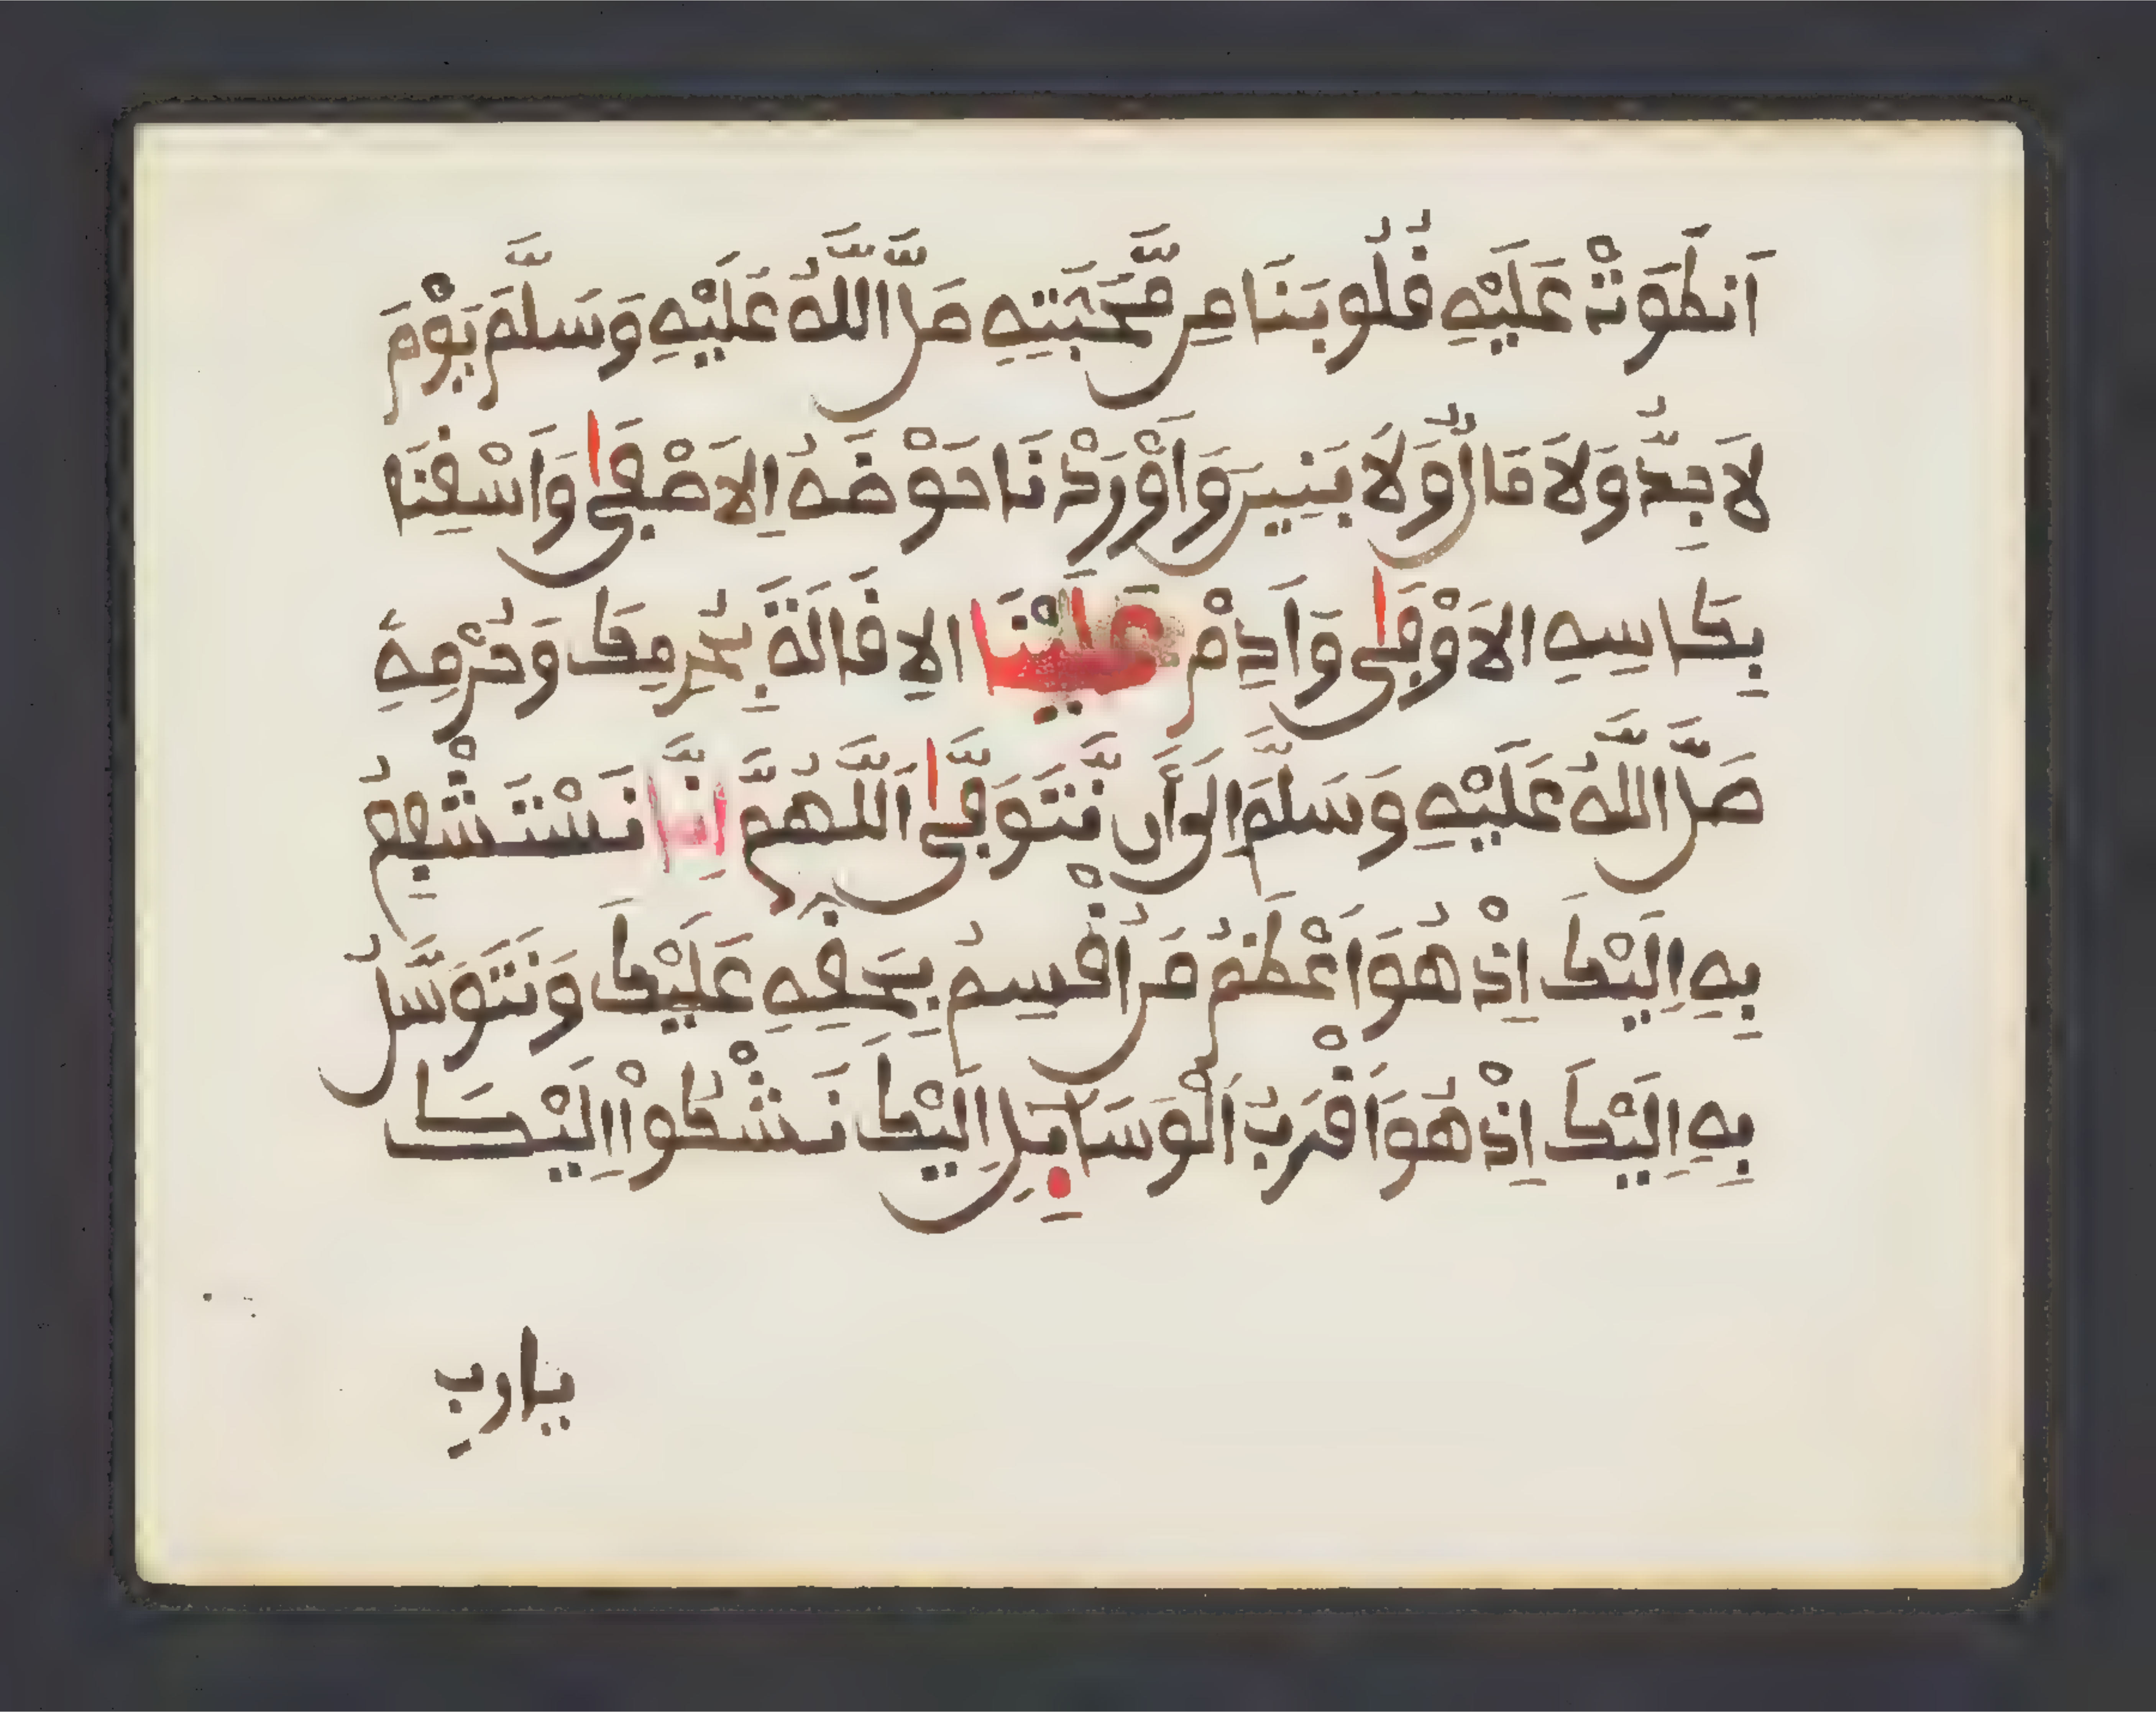 اَنطَوَتْ عَلَيْهِ قُلُوبَنَا مِن مَّحَبَّتِهِ صَلَّى اللَّهُ عَلَيْهِ وَسَلَّمَ يَوْمَ
لَا جِدٌّ وَلَا مَالٌ وَلَا بَنِينَ وَأَوْرِدْنَا حَوْضَهُ الَاصْفَى وَاسْقِنَا
بِكَاسِهِ الَاوْفَى وَأَدِمْ عَلَيْنَا الِاقَالَةَ بِحُرُمِكَ وَحُرْمَةِ
صَلَّى اللَّهُ عَلَيْهِ وَسَلَّمَ إِلَى أَن نَّتَوَفَّى اَللَّهُمَّ إِنَّا نَسْتَشْفِعُ
بِهِ إِلَيْكَ إِذْ هُوَ أَعْظَمُ مَنْ أُقْسِمُ بِحَقِّهِ عَلَيْكَ وَنَتَوَسَّلُ
بِهِ إِلَيْكَ إِذْ هُوَ أَقْرَبُ الْوَسَائِلِ إِلَيْكَ نَشْكُوا إِلَيْكَ
يارب